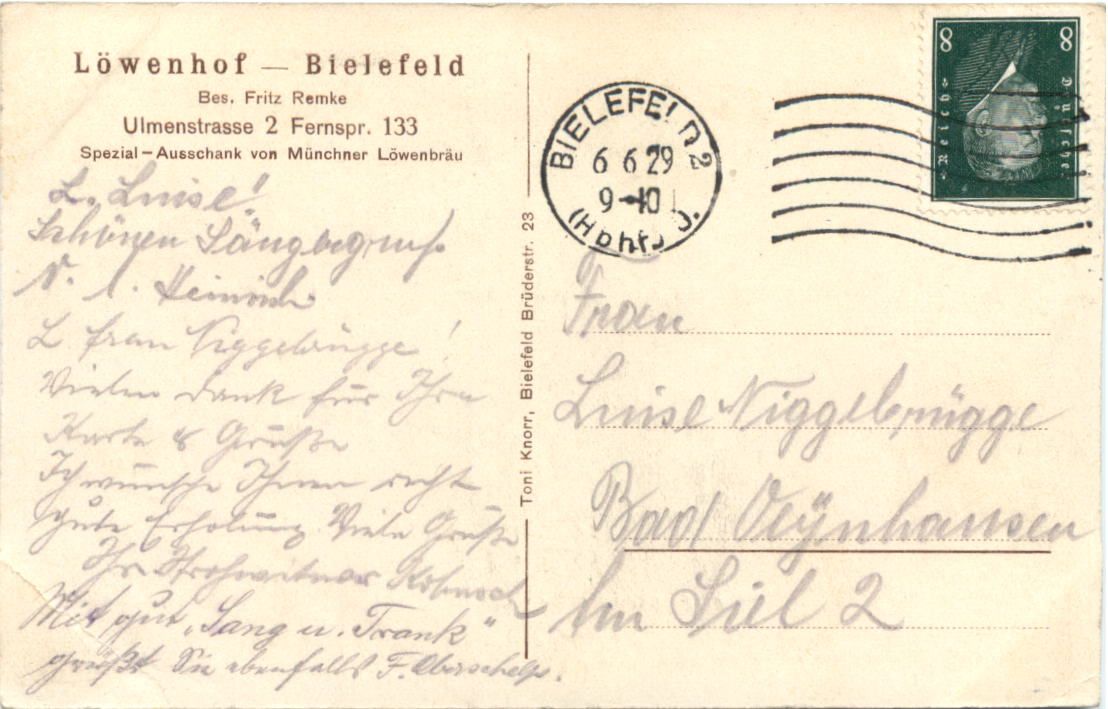 Löwenhof — Bielefeld
Bes. Fritz Remke
Ulmenstrasse 2 Fernspr. 133
Spezial-Ausschank von Münchner Löwenbräu
L. Luise!
Schönen Sängergruß
Heinrich
L Frau Niggebrügge!
Vielen Dank für Ihre
Karte & Grüße
Ich wünsche Ihnen recht
gute Erholung. Viele Grüße
Ihr
Mit gut „Sang u. Trank"
grüßt Sie ebenfalls F. Oberschelp.
Toni Knorr, Bielefeld Brüderstr. 23
BIELEFELD 2
6 6 29
9-10
(Hbhf.)
8 8
Deutsches Reich
Frau
Luise Niggebrügge
Bad Oeynhausen
Am Siel 2